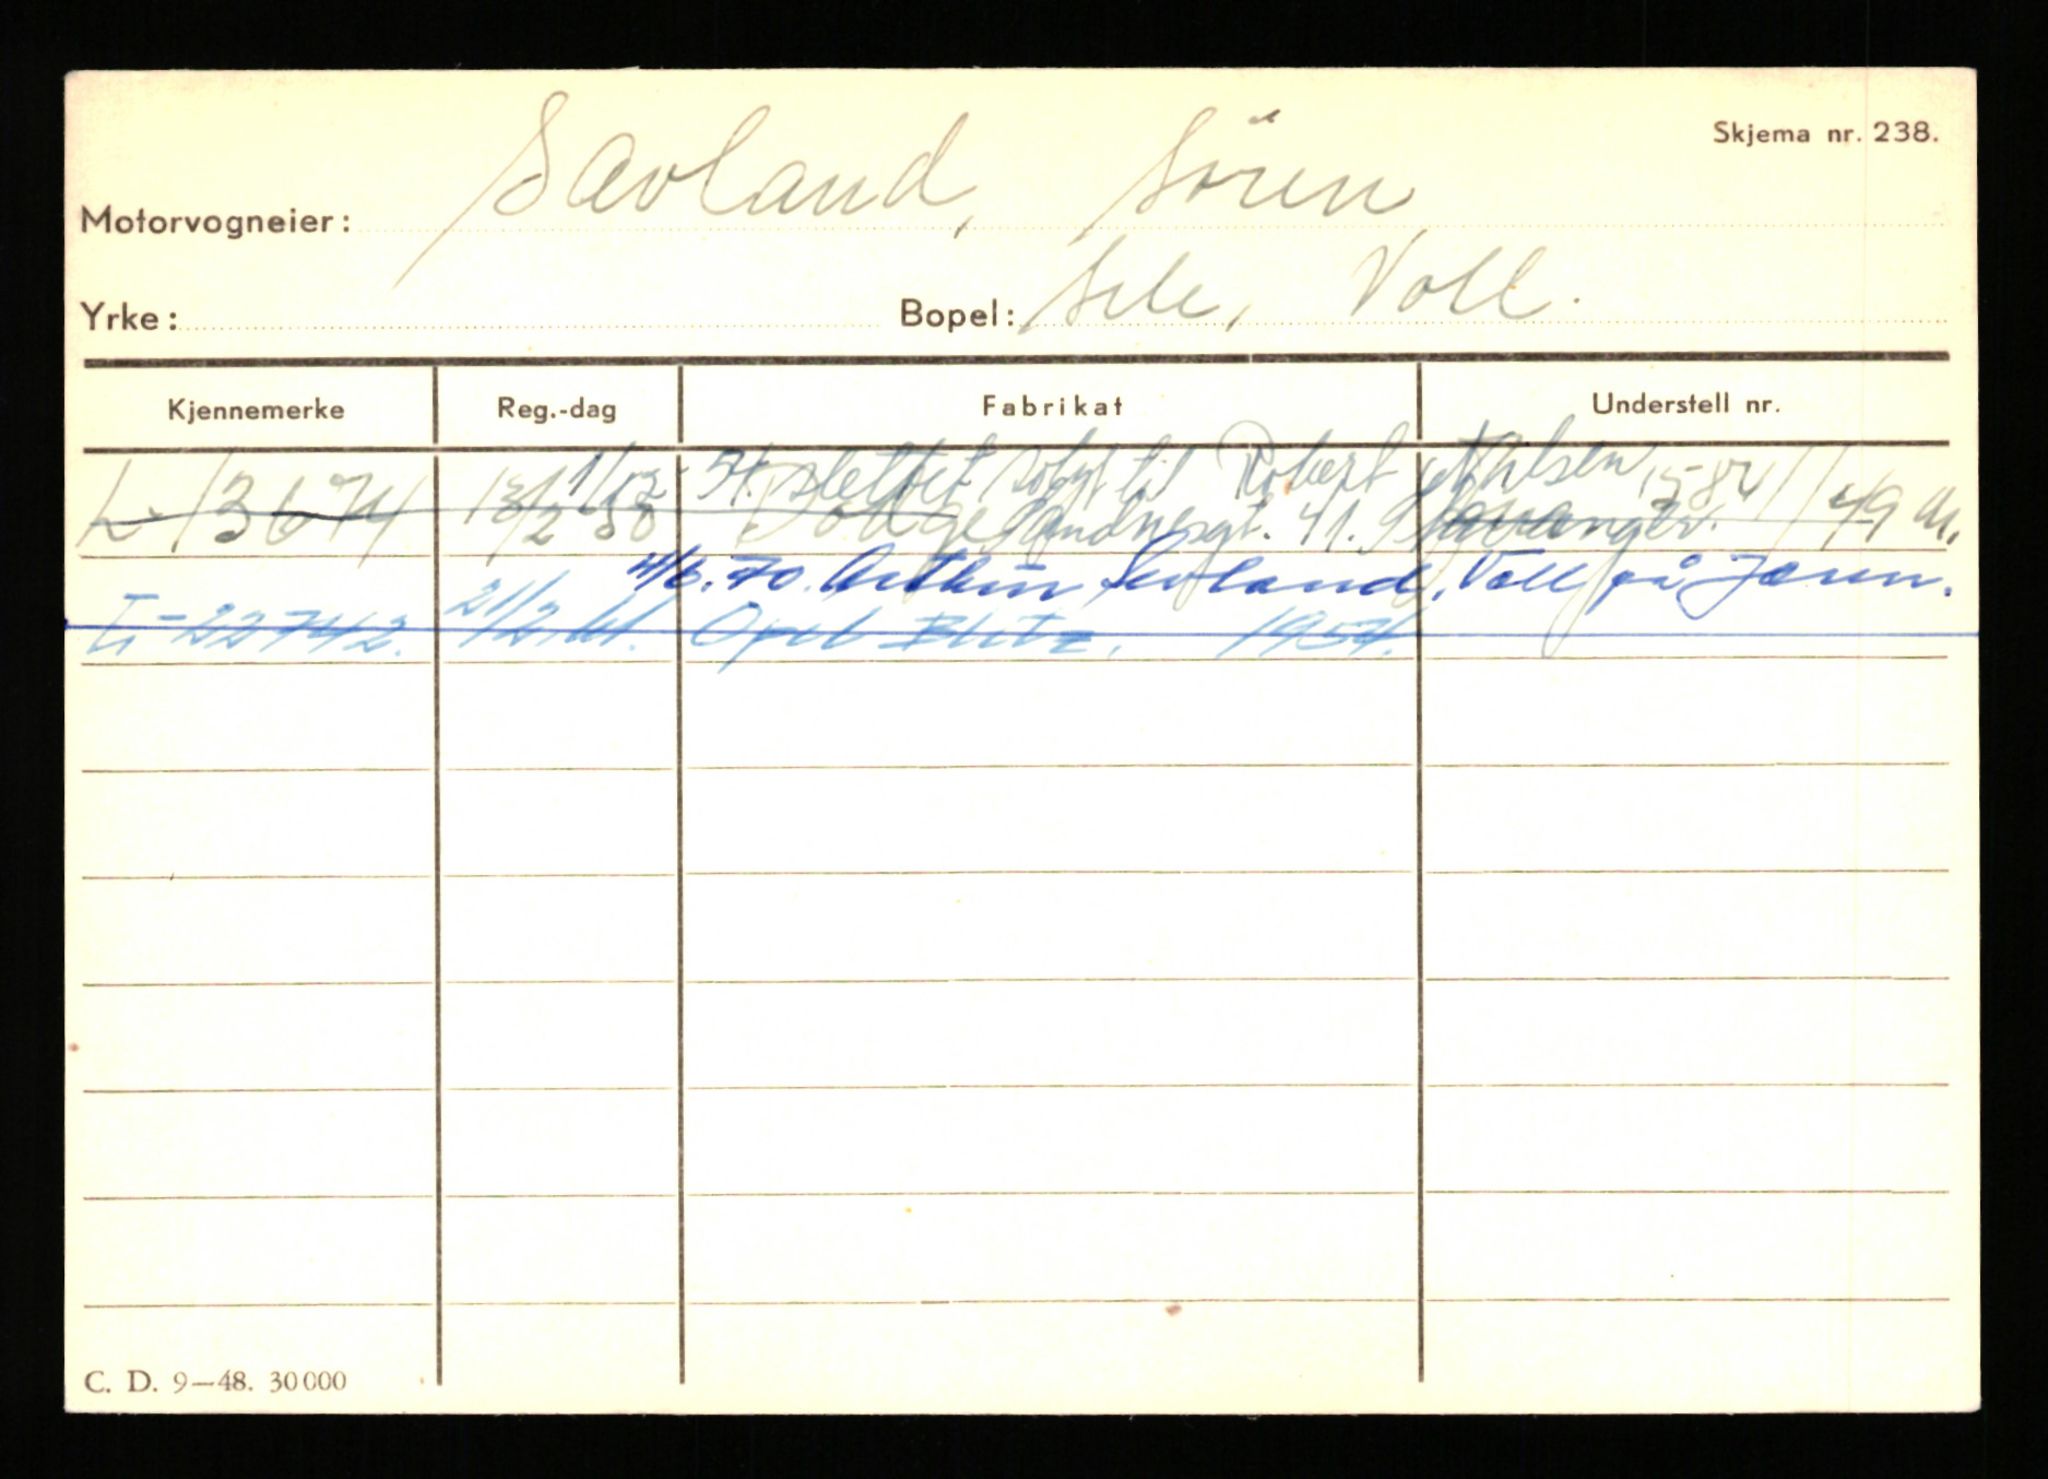 Skjema nr. 238.
Motorvogneier: Sævland, Sören
Yrke: Bopel: Sele, Voll.
Kjennemerke Reg.-dag Fabrikat Understell nr.
slettet solgt til Robert Nilsen
L-13674 13/2 50 Dodge Sandnesgt. 41. Stavanger. 49 M.
4/6.70. Arthur Sevland, Voll på Jæren.
L-22742. 21/2 61. Opel Blitz, 1954.
C. D. 9—48. 30 000